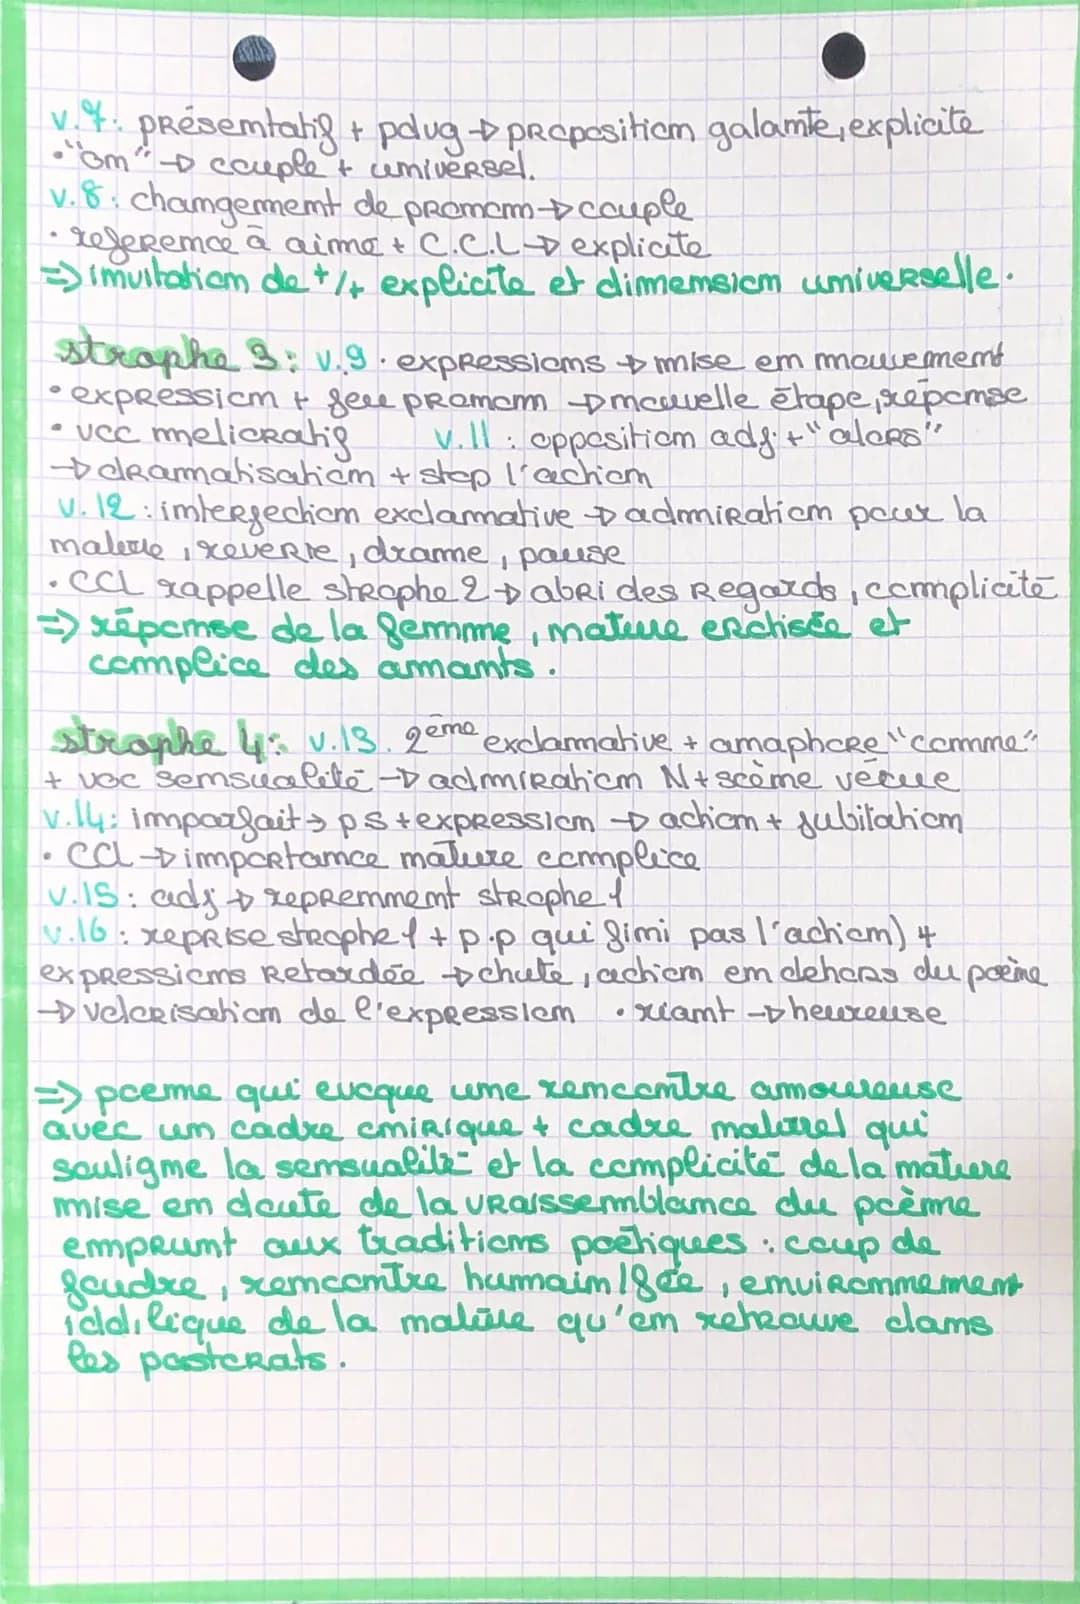 v.7: présentatif + pdvg → proposition galante, explicite
• "on" → couple + universel.
v.8: changement de pronom → couple
• reference à aimer + C.C.L → explicite
=> invitation de +/+ explicite et dimension universelle.
strophe 3: v.9 • expressions → mise en mouvement
• expression + jeu pronom → nouvelle étape, réponse
• voc melioratif v.11 : opposition adj. + "alors"
→ dramatisation + stop l'action
v.12 : interjection exclamative → admiration pour la
nature, reverie, drame, pause
• CCL rappelle strophe 2 → abri des regards, complicité
=> réponse de la femme, nature érotisée et
complice des amants.
strophe 4: v.13. 2ème exclamative + anaphore "comme"
+ voc sensualité → admiration N + scène vécue
v.14: imparfait → ps + expression → action + jubilation
• CCL → importance nature complice
v.15 : adj → reprennent strophe 1
v.16 : reprise strophe 1 + p.p qui fini pas l'action) +
expressions retardée → chute, action en dehors du poème
→ valorisation de l'expression • riant → heureuse
=> poeme qui evoque une rencontre amoureuse
avec un cadre onirique + cadre naturel qui
souligne la sensualité et la complicité de la nature
mise en doute de la vraissemblance du poème
emprunt aux traditions poétiques : coup de
foudre, rencontre humain/fée, environnement
iddilique de la nature qu'on retrouve dans
les pastorats.